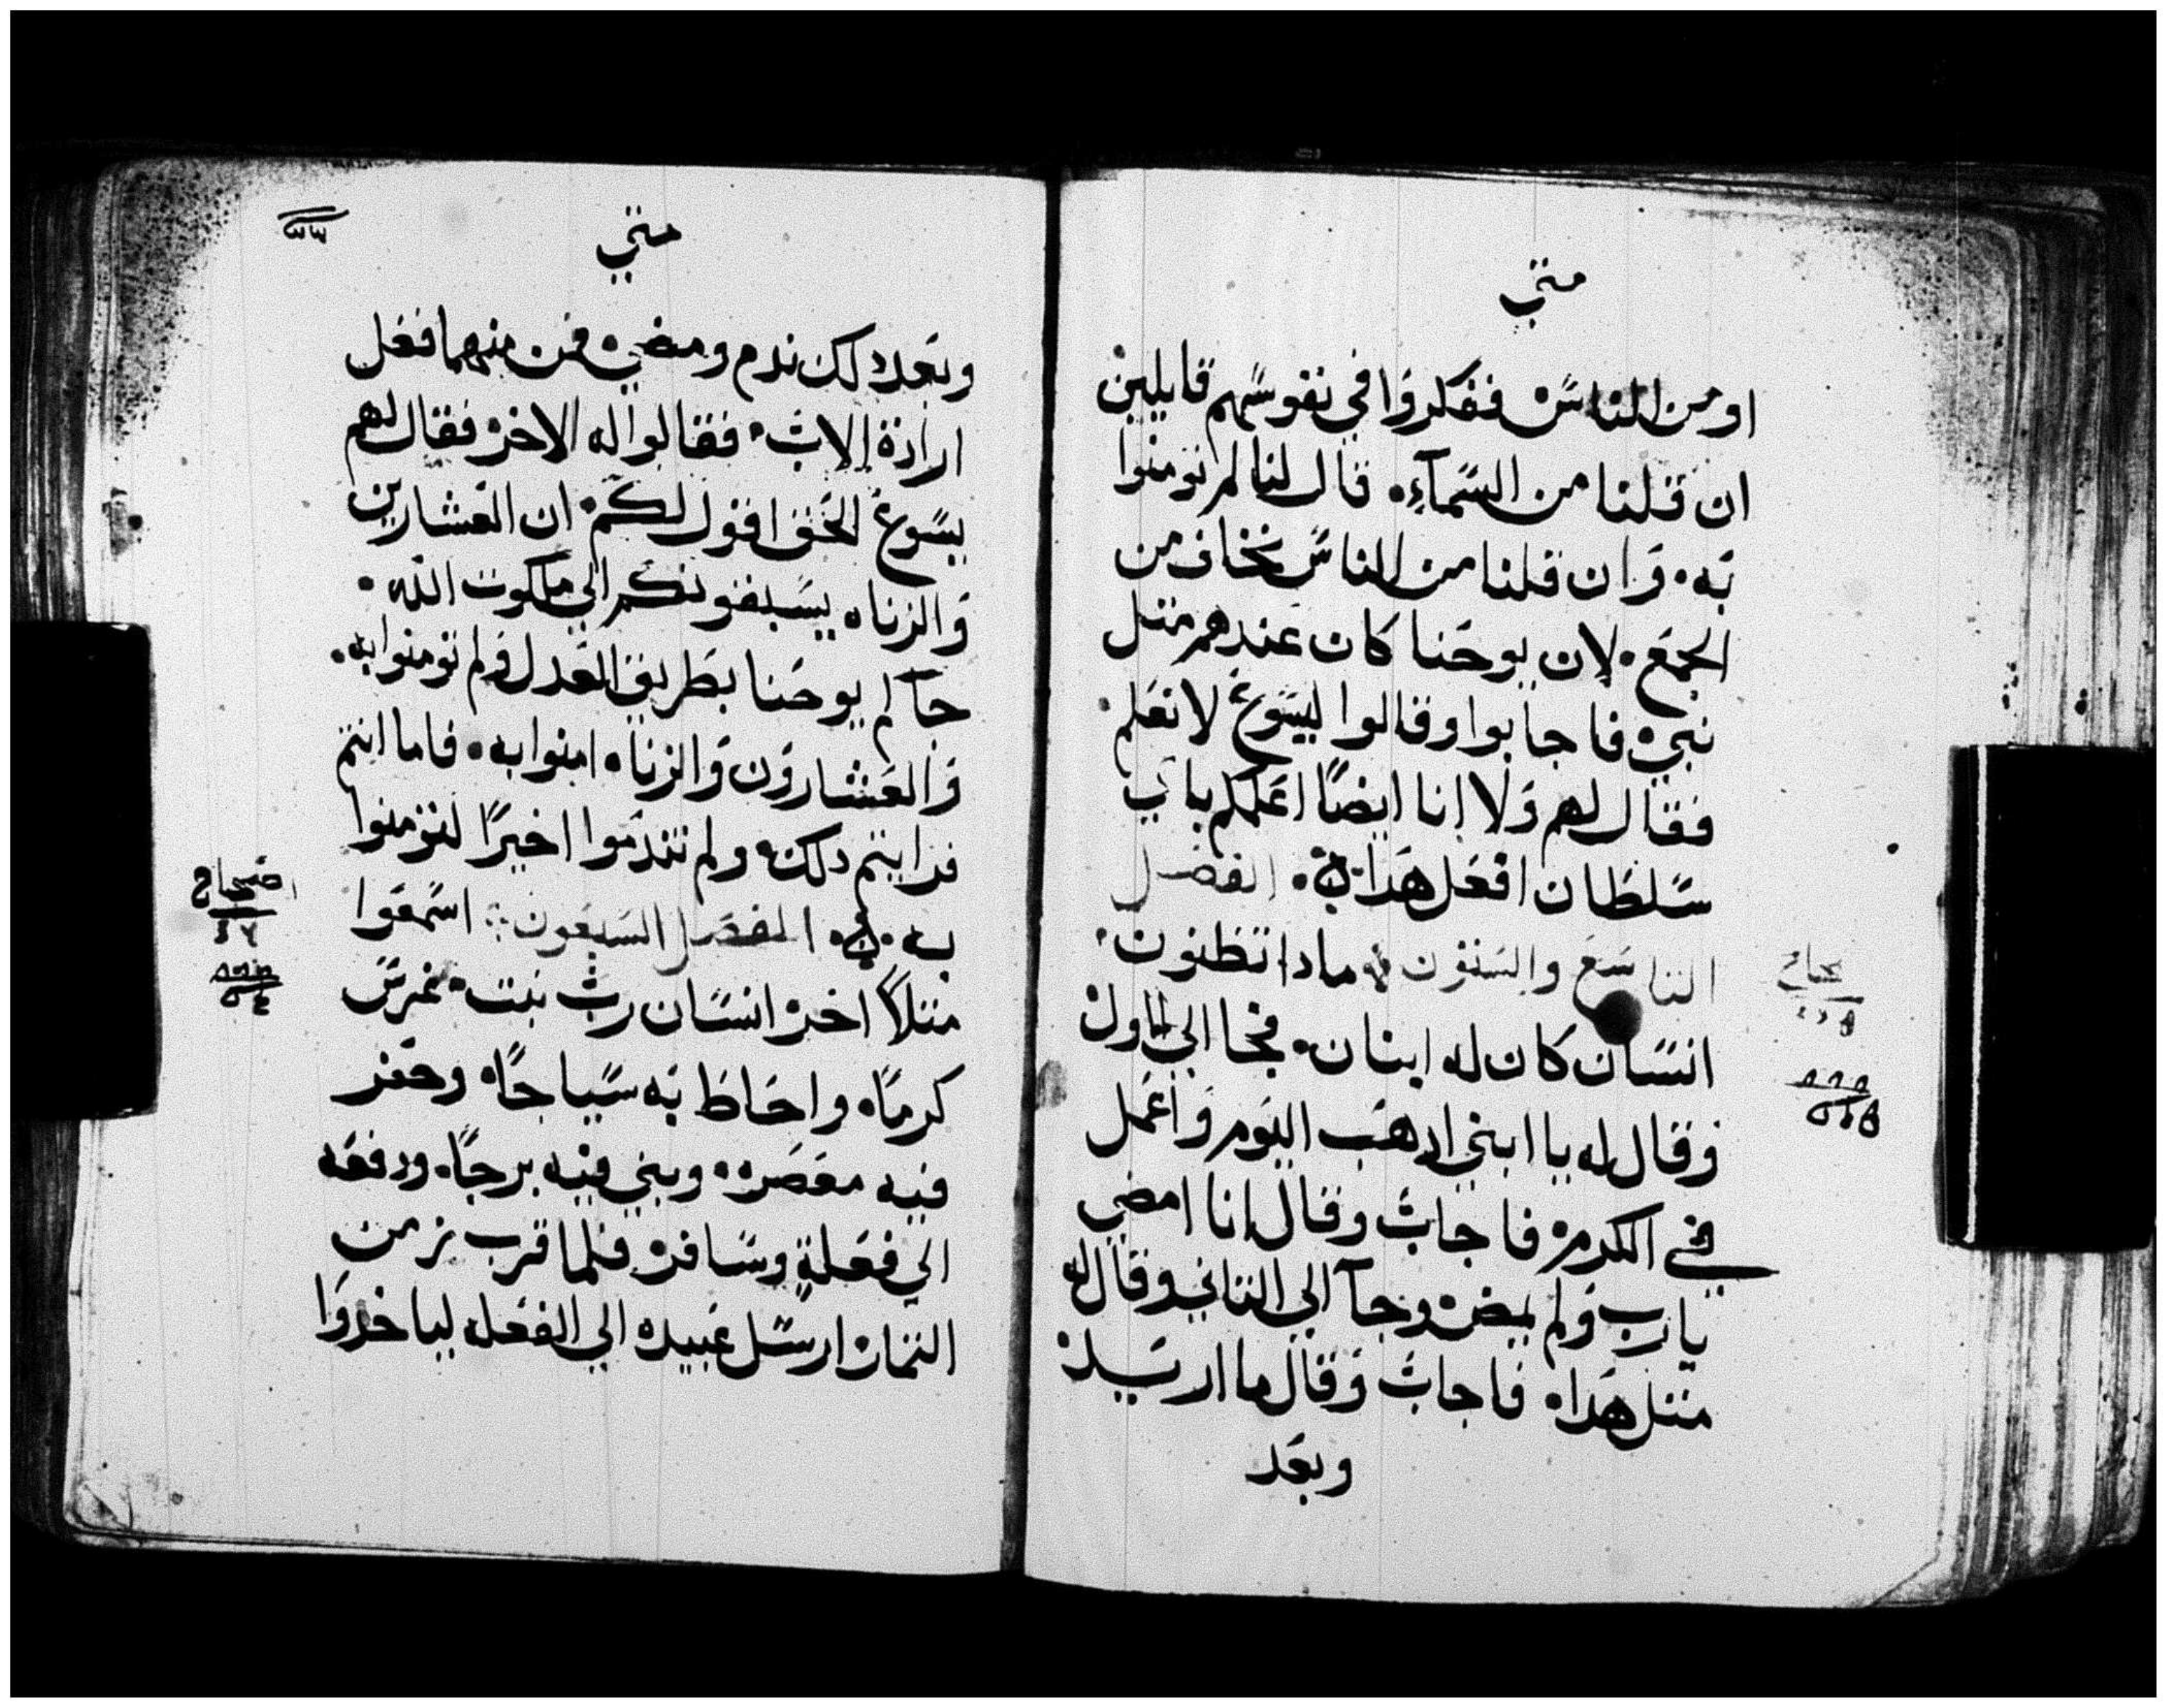 متي
او من الناس ففكروا في نفوسهم قايلين
ان قلنا من السمآء٠ قال لنا لم تومنوا
به٠ وان قلنا من الناس نخاف من
الجمع٠ لان يوحنا كان عندهم متل
نبي٠ فاجابوا وقالوا ليسوع لا نعلم٠
فقال لهم ولا انا ايضًا اعلمكم باي
سلطان افعل هدا٠ الفصل
التاسع والستون مادا تظنون٠
انسان كان له ابنان٠ فجا الي الاول
وقال له يا ابني ادهب اليوم واعمل
في الكرم٠ فاجاب وقال انا امضي
يارب ولم يمض٠ وجآ الي التاني وقال له
متل هدا٠ فاجاب وقال ما اريد
وبعد
متي
وبعد دلك ندم ومضي٠ فمن منهما فعل
ارادة الاب٠ فقالوا له الاخر فقال لهم
يسوع الحق اقول لكم٠ ان العشارين
والزناه يسبقونكم الي ملكوت الله٠
جآكم يوحنا بطريق العدل ولم تومنوا به٠
والعشارون والزناه امنوا به٠ فاما انتم
فرايتم دلك٠ ولم تندموا اخيرًا لتومنوا
به٠ الفصل السبعون اسمعوا
متلاً اخر٠ انسان رب بيت٠ غرس
كرمًا٠ واحاط به سياجًا٠ وحفر
فيه معصره٠ وبني فيه برجًا٠ ودفعه
الي فعلة وسافر٠ فلما قرب زمن
التمار٠ ارسل عبيده الي الفعله لياخدوا
اصحاح